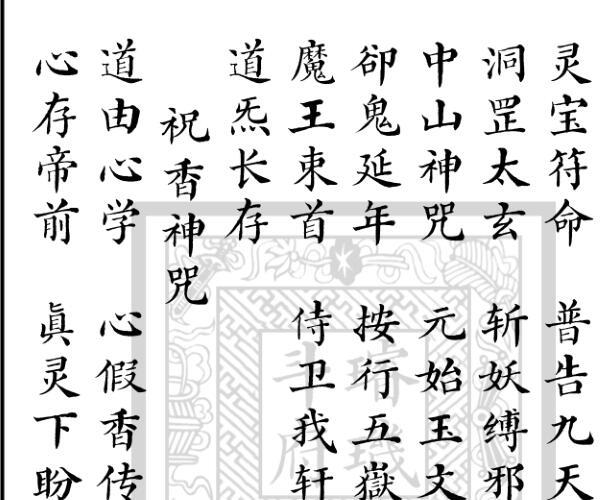 灵宝符命 普告九天
洞罡太玄 斩妖缚邪
中山神咒 元始玉文
卻鬼延年 按行五嶽
魔王束首 侍卫我轩
道炁长存
祝香神咒
道由心学 心假香传
心存帝前 眞灵下盼